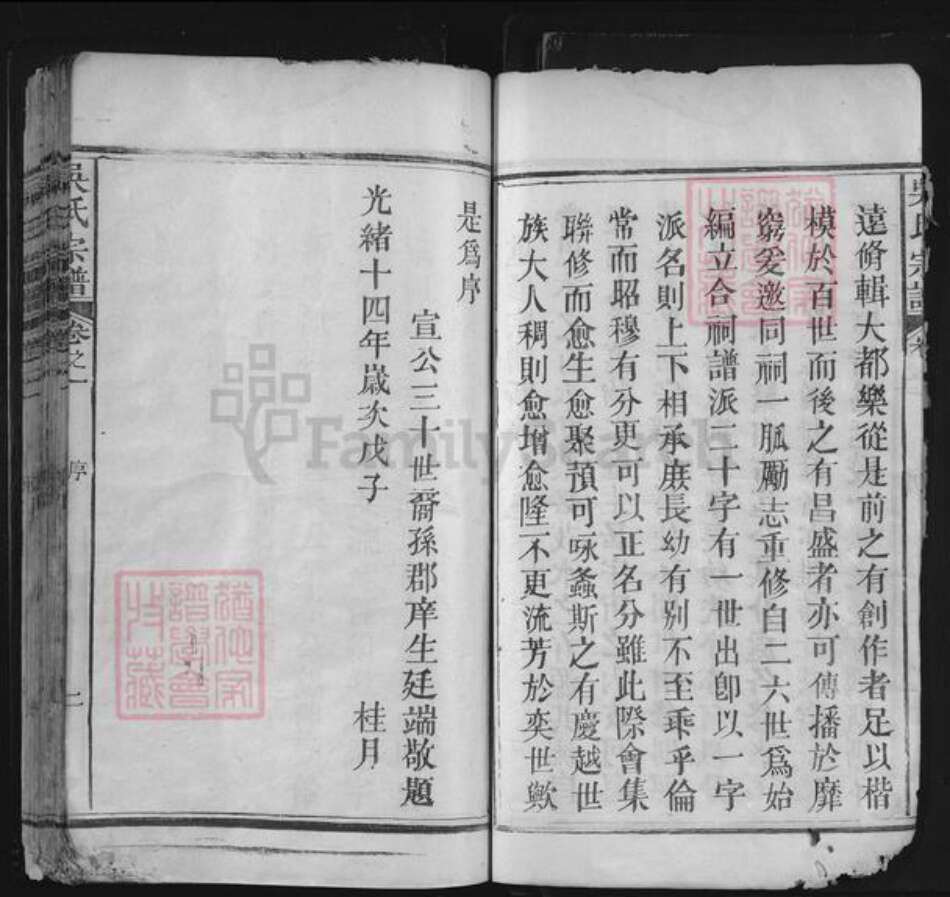 遠脩輯大都樂從是前之有創作者足以楷
模於百世而後之有昌盛者亦可傳播於靡
窮爰邀同祠一脈勵志重修自二六世爲始
編立合祠譜派二十字有一世出卽以一字
派名則上下相承庶長幼有別不至乖乎倫
常而昭穆有分更可以正名分雖此際會集
聯修而愈生愈聚預可咏螽斯之有慶越世
族大人稠則愈增愈隆不更流芳於奕世歟
是爲序
宣公三十世裔孫郡庠生廷端敬題
光緒十四年歲次戊子
桂月
吳氏宗譜
卷之一
序
二
吳氏宗譜
譜學會
收藏
FamilySearch